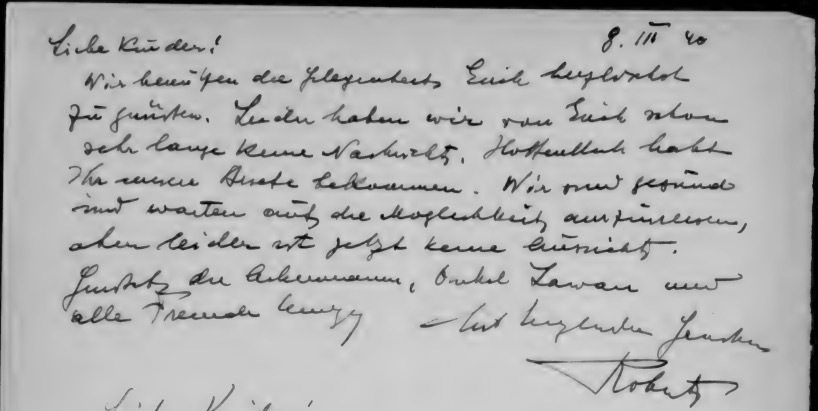 Liebe Kinder! 8. III 40
Wir benützen die Gelegenheit Euch herzlichst
zu grüßen. Leider haben wir von Euch schon
sehr lange keine Nachricht. Hoffentlich habt
Ihr unsere Briefe bekommen. Wir sind gesund
und warten auf die Möglichkeit auszureisen,
aber leider ist jetzt keine Aussicht.
die Onkel und
alle Freunde Mit herzlichen
Robert
Liebe Kinder!